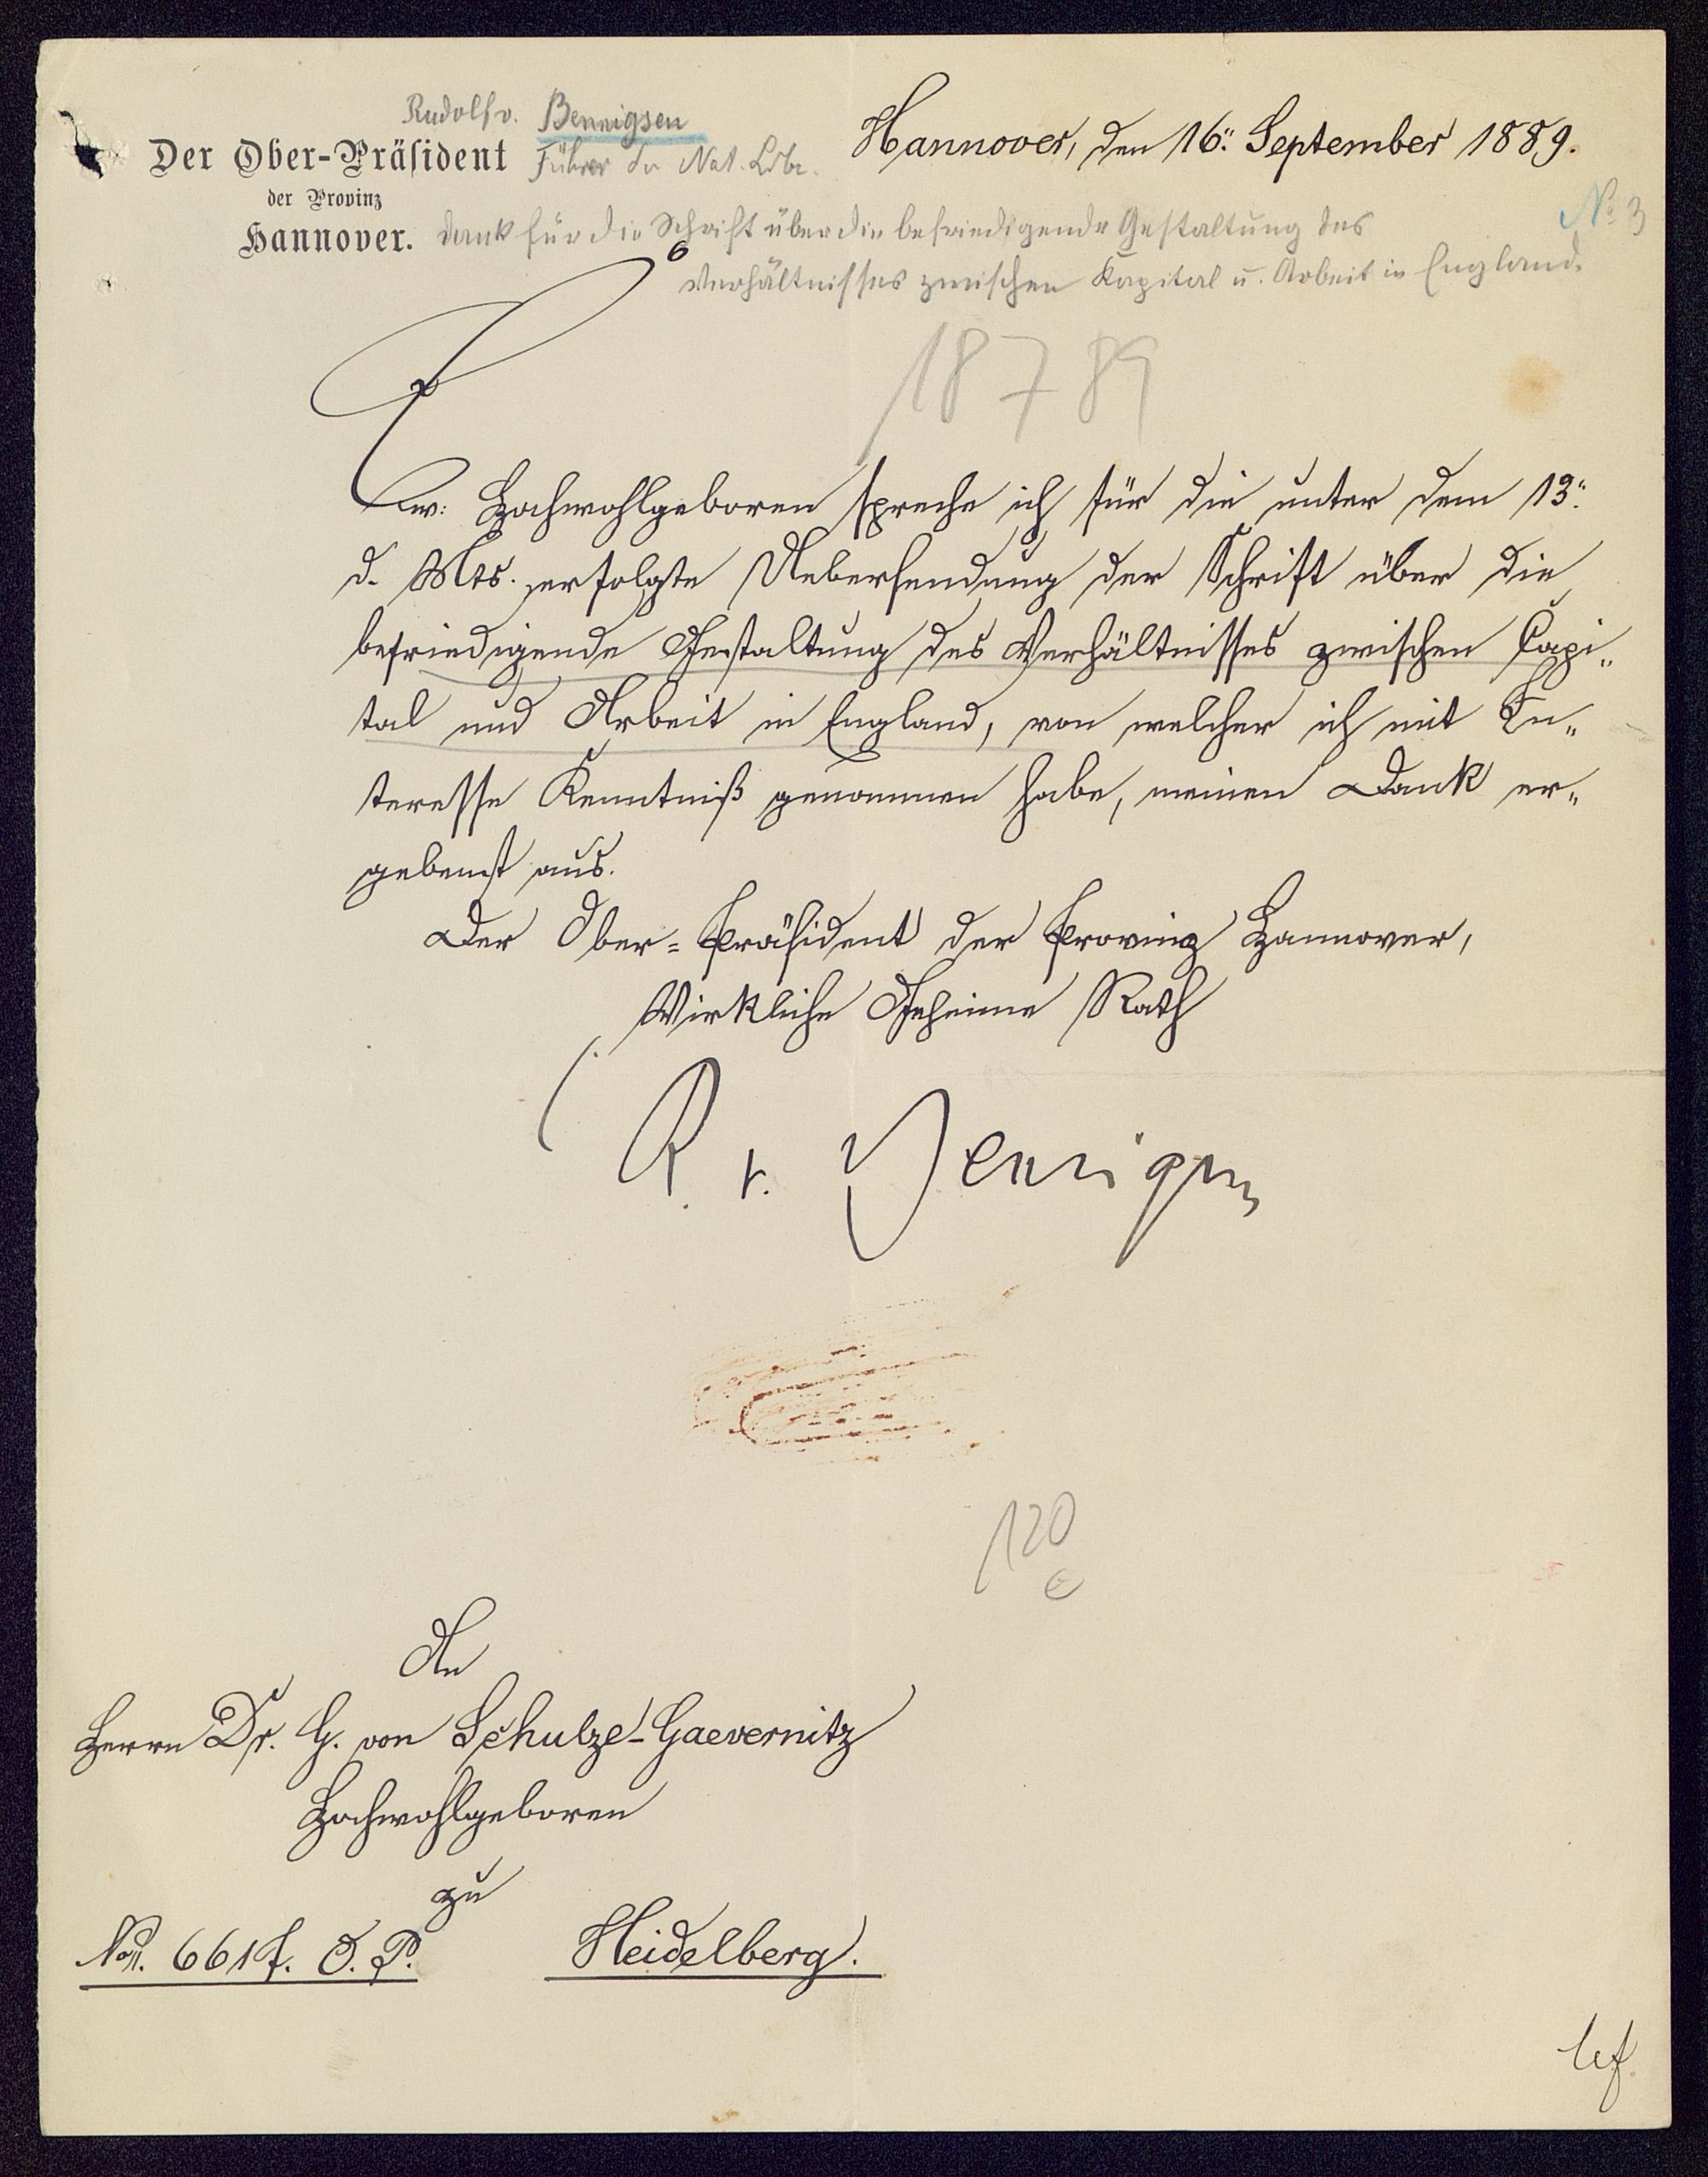 Rudolf v. Bennigsen
Führer der Nat. Libr.
Der Ober-Präsident
der Provinz
Hannover.
Hannover, den 16. September 1889.
No 3
Dank für die Schrift über die befriedigende Gestaltung des
Verhältnisses zwischen Kapital u. Arbeit in England.
18789
Ew. Hochwohlgeboren spreche ich für die unter dem 13.
d. Mts. erfolgte Uebersendung der Schrift über die
befriedigende Gestaltung des Verhältnisses zwischen Capi-
tal und Arbeit in England, von welcher ich mit In-
teresse Kenntniß genommen habe, meinen Dank er-
gebenst aus.
Der Ober-Präsident der Provinz Hannover,
Wirkliche Geheime Rath
R. v. Bennigsen
120
An
Herrn Dr. G. von Schulze-Gaevernitz
Hochwohlgeboren
zu
Heidelberg.
O. P.